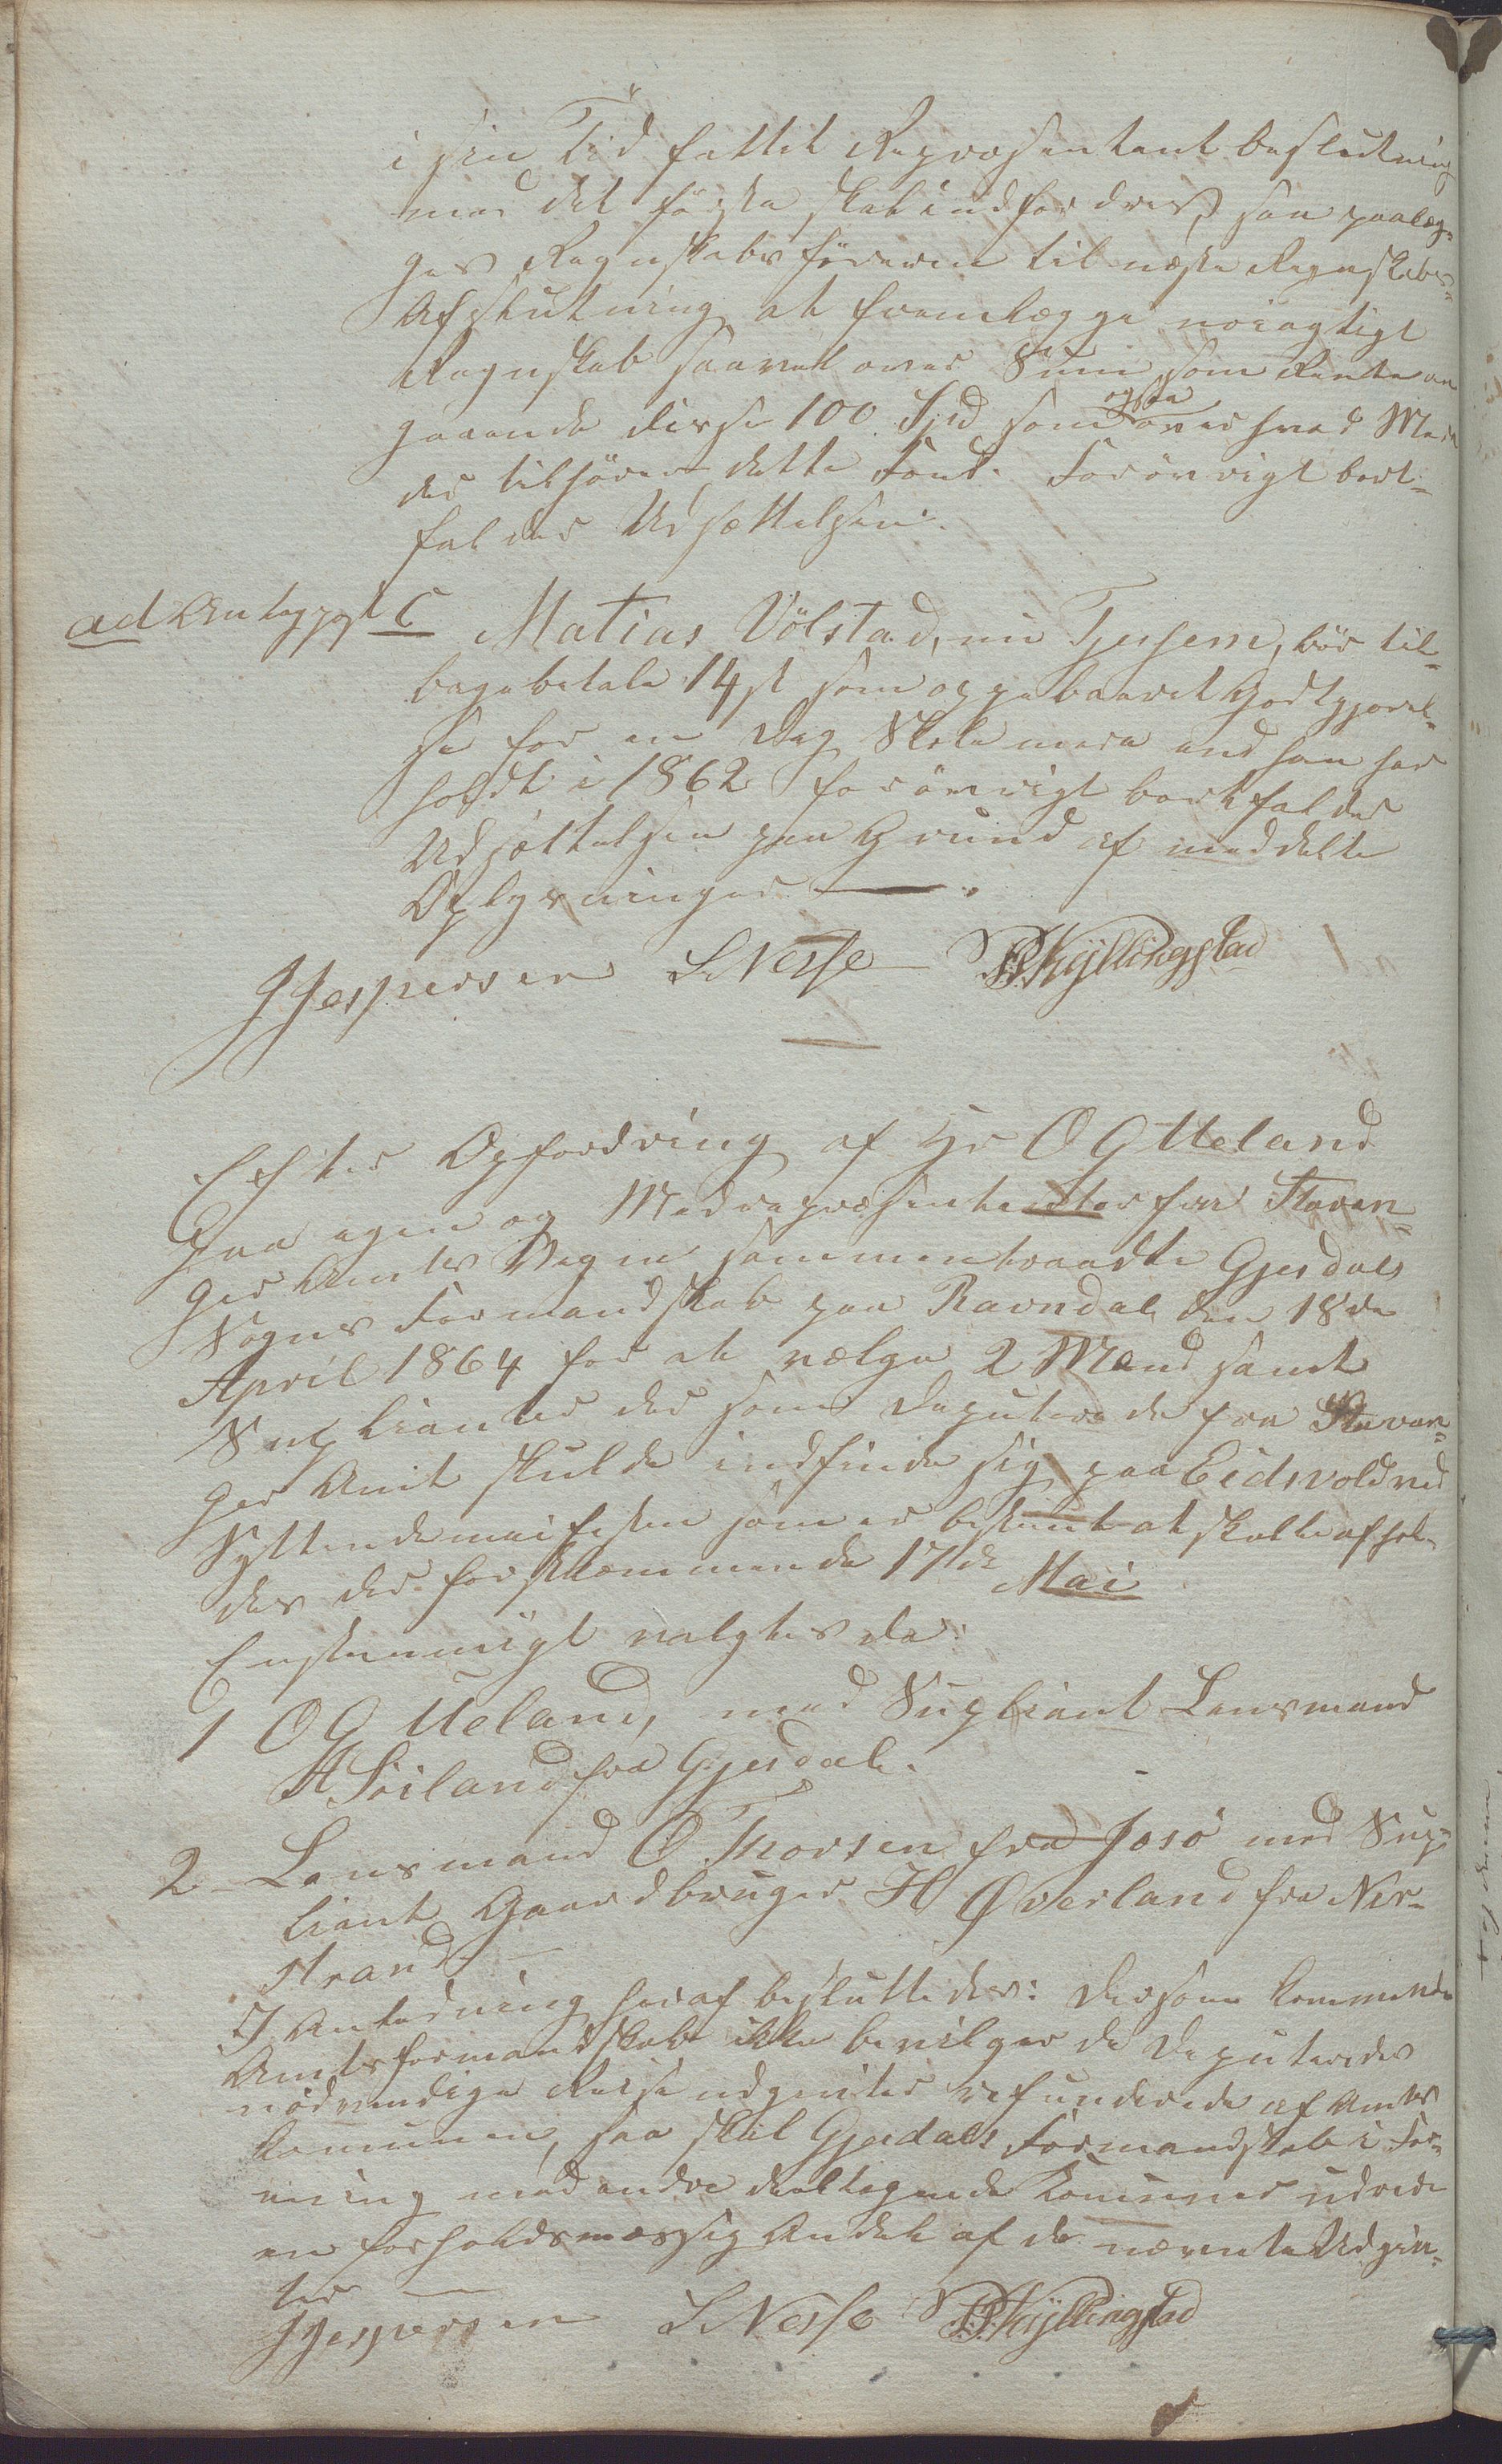 i sin Tid fattet Repræsentantbeslutning
mer det første skal indfordres, saa paalæg-
ges Regnskabsføreren til næste Regnskabs-
Afslutning at fremlægge nøiagtigt
Regnskab saavel over Sum som Rente an
gaaende disse 100 Spd som ogsaa over hvad Mer
der tilhører dette Fond. Forøvrigt bort-
falder Udsættelsen.
ad Antegpost C Matias Völstad, nu Tjessem, bör til-
bagebetale 14 s som oppebaaret Godtgjørel-
se for en Dag Skole mere end han har
holdt i 1862 forøvrigt bortfalder
Udsættelsen paa Grund af meddelte
Oplysninger.
J Jespersen S Nesse T P Kÿllingstad
Efter Opfordring af Hr O G Ueland
paa egen og Medrepræsentanter fra Stavan-
ger Amts Vegne sammentraadte Gjesdals
Sogns Formandskab paa Ravndal den 18de
April 1864 for at vælge 2 Mænd samt
Suplianter der som Deputerede fra Stavan-
ger Amt skulde indfinde sig paa Eidsvold ved
Syttendemaifesten som er bestemt at skulle afhol-
des der forstkommende 17de Mai
Enstemmigt valgtes da:
1 O G Ueland, med Supliant Lensmand
A Söiland fra Gjesdal.
2 Lensmand O Thorsen fra Josö med Sup-
liant Gaardbruger H Øverland fra Ner-
strand
I Anledning heraf besluttedes: Dersom kommende
Amtsformandskab ikke bevilger de Deputeredes
nödvendige Reiseudgivter refunderede af Amts
Komunen, saa skal Gjesdals Formandskab i For-
ening med andre deeltagende Komuner udrede
en forholdsmæssig Andel af de nævnte Udgiv-
ter
J Jespersen S Nesse T P Kÿllingstad